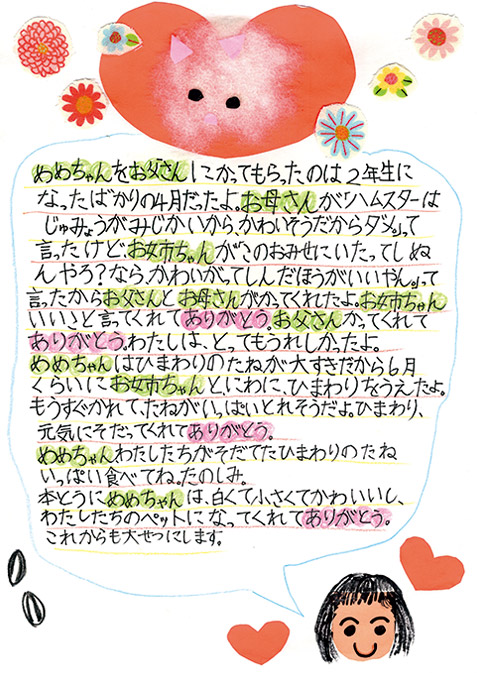 めめちゃんをお父さんにかってもらったのは2年生に
なったばかりの4月だったよ。お母さんが「ハムスターは
じゅみょうがみじかいから、かわいそうだからダメ。」って
言ったけど、お姉ちゃんが「このおみせにいたってしぬ
んやろ?ならかわいがってしんだほうがいいやん。」って
言ったからお父さんとお母さんがかってくれたよ。お姉ちゃん
いいこと言ってくれてありがとう。お父さんかってくれて
ありがとう。わたしは、とってもうれしかったよ。
めめちゃんはひまわりのたねが大すきだから6月
くらいにお姉ちゃんと、にわに、ひまわりをうえたよ。
もうすぐかれて、たねがいっぱいとれそうだよ。ひまわり、
元気にそだってくれてありがとう。
めめちゃん、わたしたちがそだてたひまわりのたね
いっぱい食べてね。たのしみ。
本とうにめめちゃんは、白くて小さくてかわいいし、
わたしたちのペットになってくれてありがとう。
これからも大せつにします。